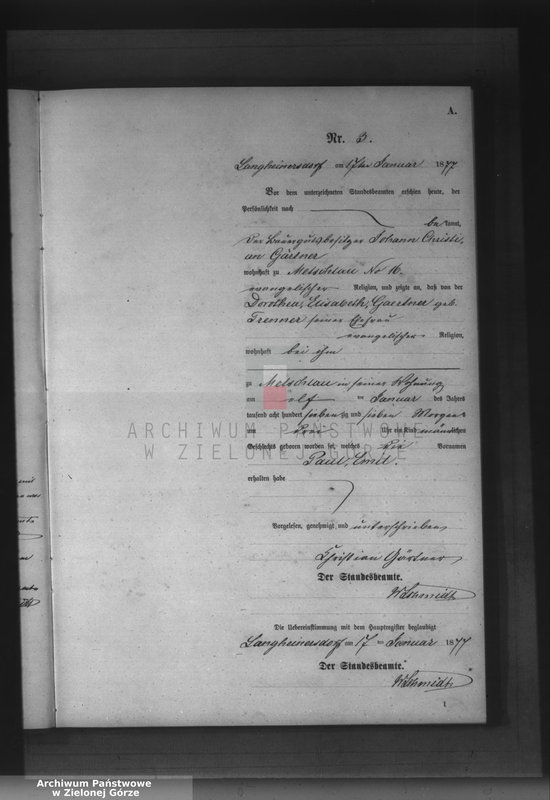 A.
Nr. 3.
Langheinersdorf am 17ten Januar 1877
Vor dem unterzeichneten Standesbeamten erschien heute, der
Persönlichkeit nach
be kannt,
Der Bauergutsbesitzer Johann Christi,
an Gärtner
wohnhaft zu Metschlau No 16.
evangelischer Religion, und zeigte an, daß von der
Dorothea, Elisabeth, Gaertner geb.
Trenner seiner Ehefrau
evangelischer Religion,
wohnhaft bei ihm
zu Metschlau in seiner Wohnung
am elf ten Januar des Jahres
tausend acht hundert sieben zig und sieben Morgens
um drei Uhr ein Kind männlichen
Geschlechts geboren worden sei, welches die Vornamen
Paul, Emil.
erhalten habe
Vorgelesen, genehmigt und unterschrieben
Christian Gärtner
Der Standesbeamte.
WSchmidt
Die Uebereinstimmung mit dem Hauptregister beglaubigt
Langheinersdorf am 17 ten Januar 1877
Der Standesbeamte.
WSchmidt
1
ARCHIWUM PAŃSTWOWE
W ZIELONEJ GÓRZE
Archiwum Państwowe
w Zielonej Górze